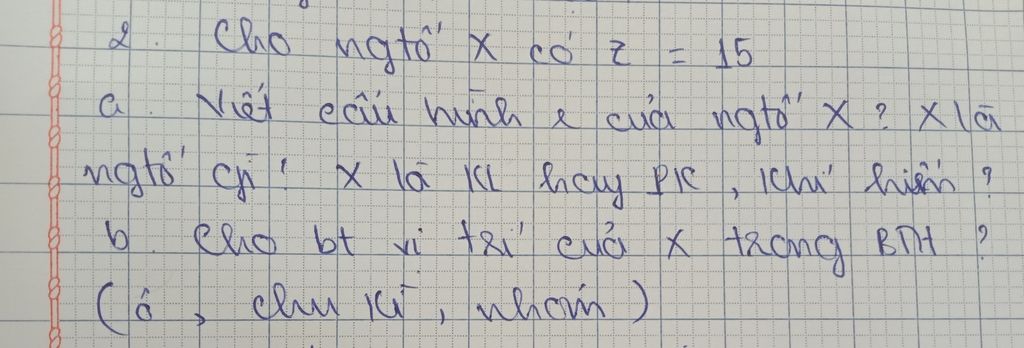 2. Cho ngtố X có Z = 15
a. Viết cấu hình e của ngtố X? X là
ngtố gì? X là KL hay PK, khí hiếm?
b. Cho bt vị trí của X trong BTH?
(ô, chu kì, nhóm)